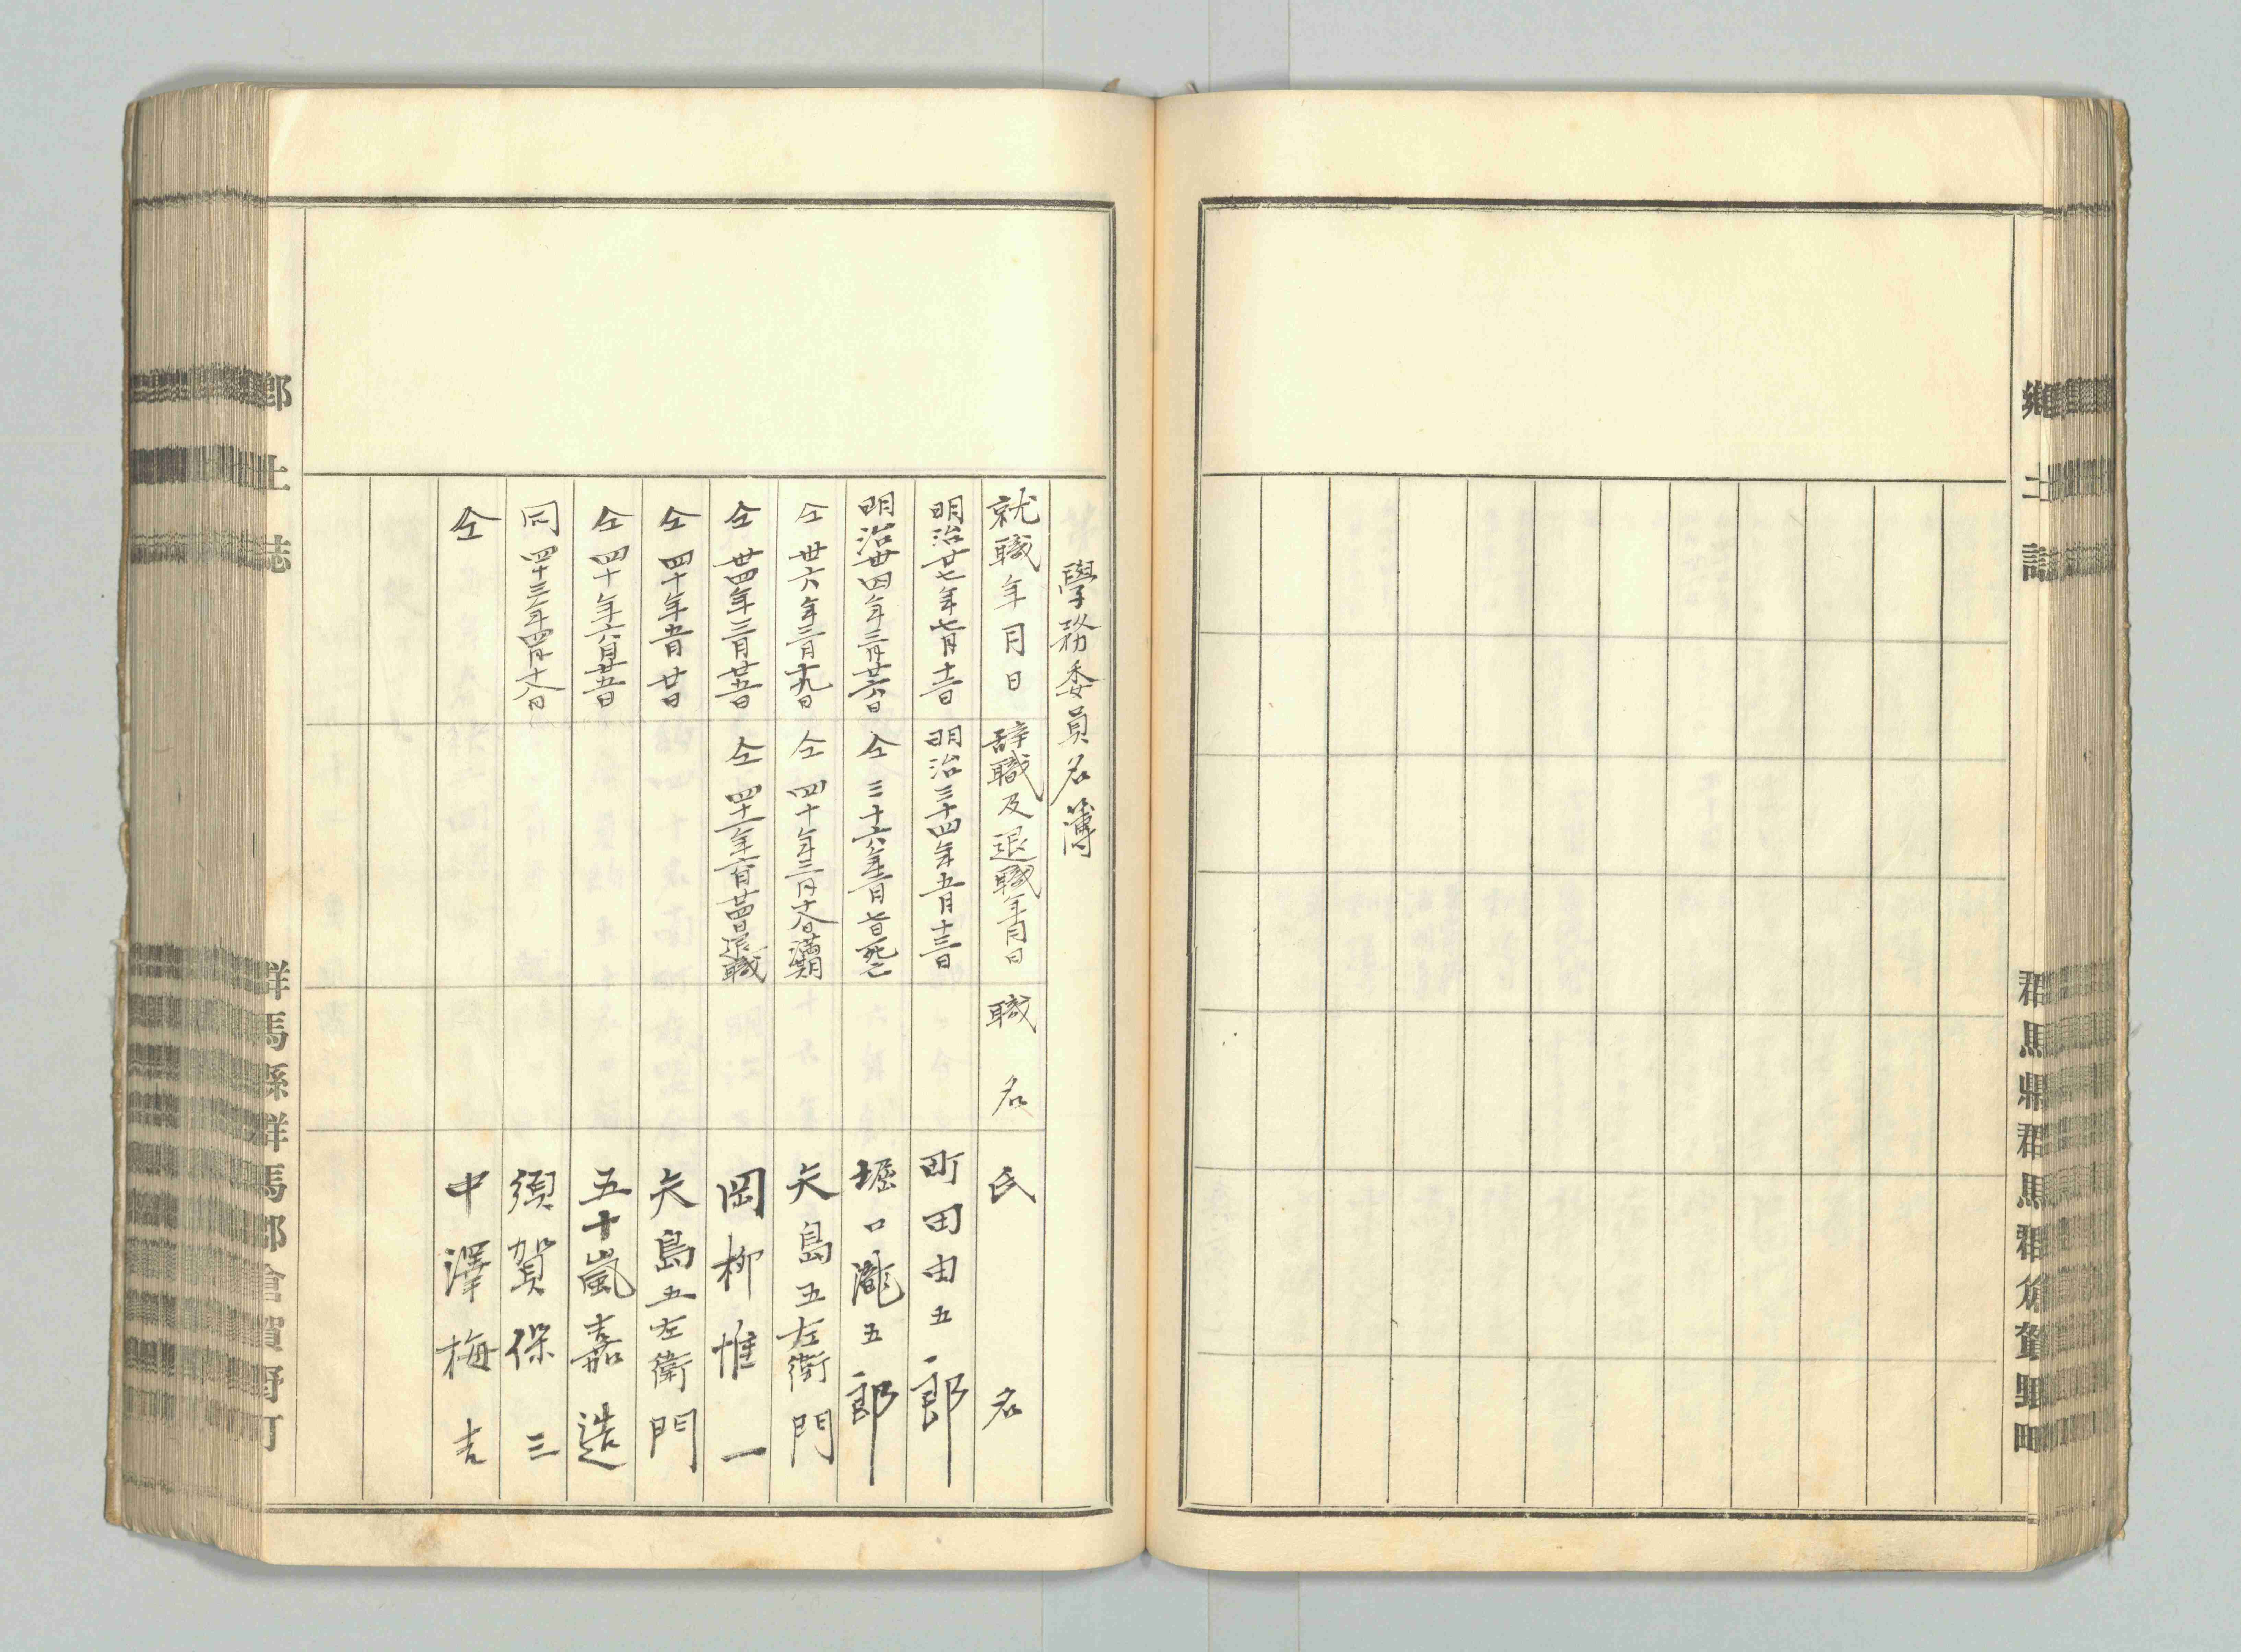 鄕土誌
群馬縣群馬郡倉賀野町
學務委員名簿
就職年月日 辞職及退職年月日 職名 氏名
明治廿七年七月十二日 明治三十四年五月十三日 町田由五郎
明治卅四年三月廿六日 仝 三十六年二月七日死亡 堀口瀧五郎
仝 卅六年三月十九日 仝 四十年三月十八日満期 矢島五左衛門
仝 卅四年三月廿五日 仝 四十一年六月廿四日退職 岡柳惟一
仝 四十年五月廿日 矢島五左衛門
仝 四十年六月廿五日 五十嵐嘉造
同 四十三年四月十八日 須賀保三
仝 中澤梅吉
鄕土誌
群馬縣群馬郡倉賀野町